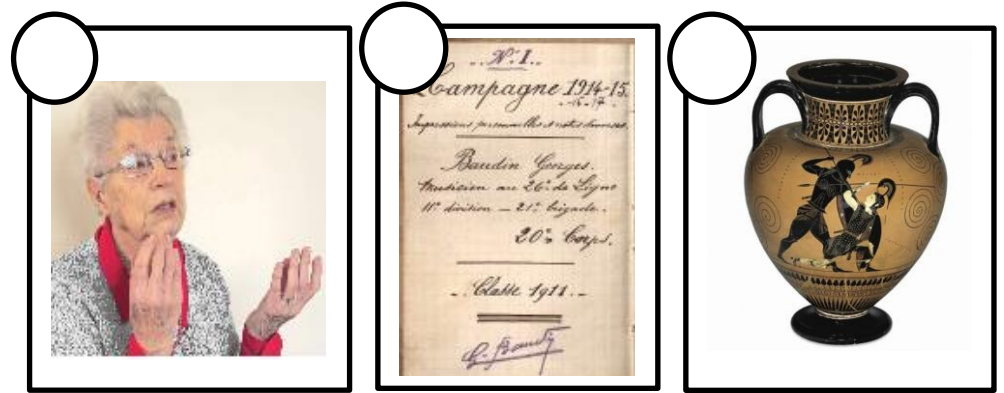 N° I.
Campagne 1914-15.
-16-17-
Impressions personnelles et notes diverses.
Baudin Georges.
Musicien au 26e de Ligne
11e division - 21e brigade.
20e Corps.
Classe 1911.
G. Baudin